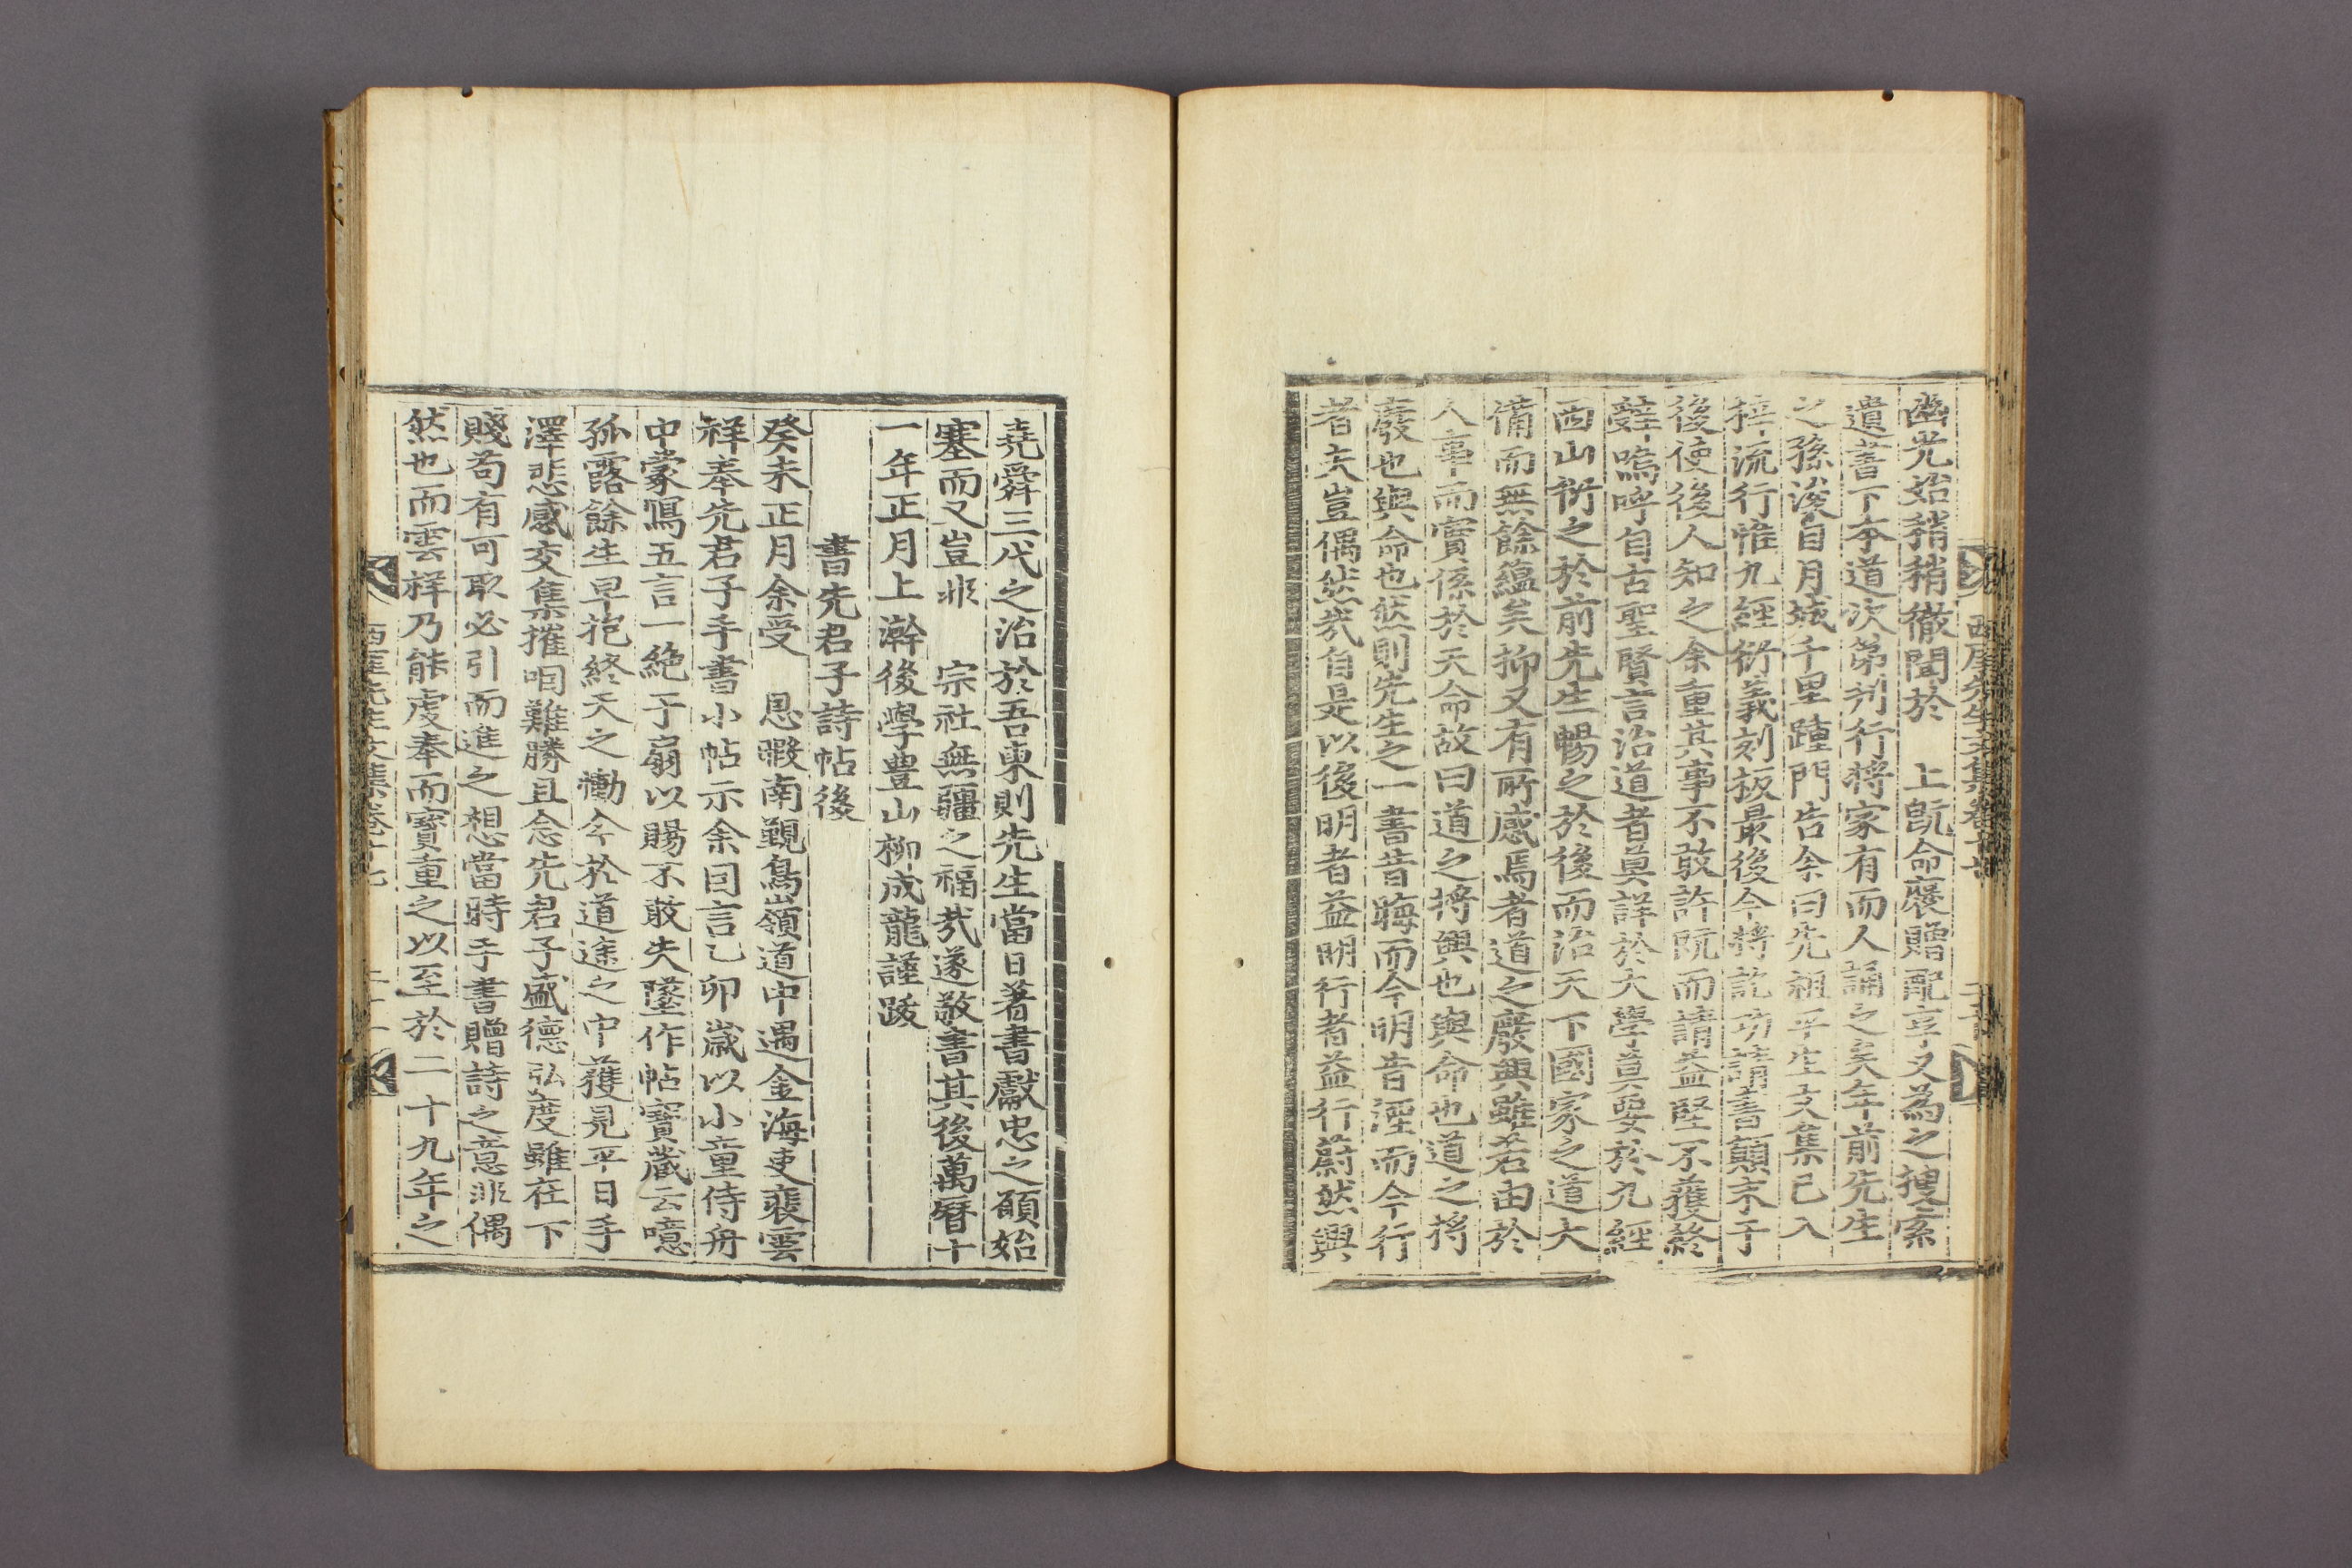 幽光始稍稍徹聞於　上旣命褒贈配享又為之搜索
遺書下本道次第刋行將家有而人誦之矣年前先生
之孫浚自月城千里踵門告余曰先祖平生文集已入
梓流行惟九經衍義刻板最後今將訖功請書顛末于
後使後人知之余重其事不敢許旣而請益堅不獲終
辭嗚呼自古聖賢言治道者莫詳於大學莫要於九經
西山衍之於前先生暢之於後而治天下國家之道大
備而無餘蘊矣抑又有所感焉者道之廢興雖若由於
人事而實係於天命故曰道之將興也與命也道之將
廢也與命也然則先生之一書昔晦而今明昔湮而今行
者夫豈偶然哉自是以後明者益明行者益行蔚然興
西厓先生文集卷十七
堯舜三代之治於吾東則先生當日著書獻忠之願始
塞而又豈非　宗社無疆之福哉遂敬書其後萬曆十
一年正月上澣後學豊山柳成龍謹跋
書先君子詩帖後
癸未正月余受　恩暇南覲鳥嶺道中遇金海吏裵雲
祥奉先君子手書小帖示余曰言乙卯歲以小童侍舟
中蒙寫五言一絶于扇以賜不敢失墜作帖寶藏云噫
孤露餘生早抱終天之慟今於道途之中獲見平日手
澤悲感交集摧咽難勝且念先君子盛德弘度雖在下
賤苟有可取必引而進之想當時手書贈詩之意非偶
然也而雲祥乃能虔奉而寶重之以至於二十九年之
西厓先生文集卷十七